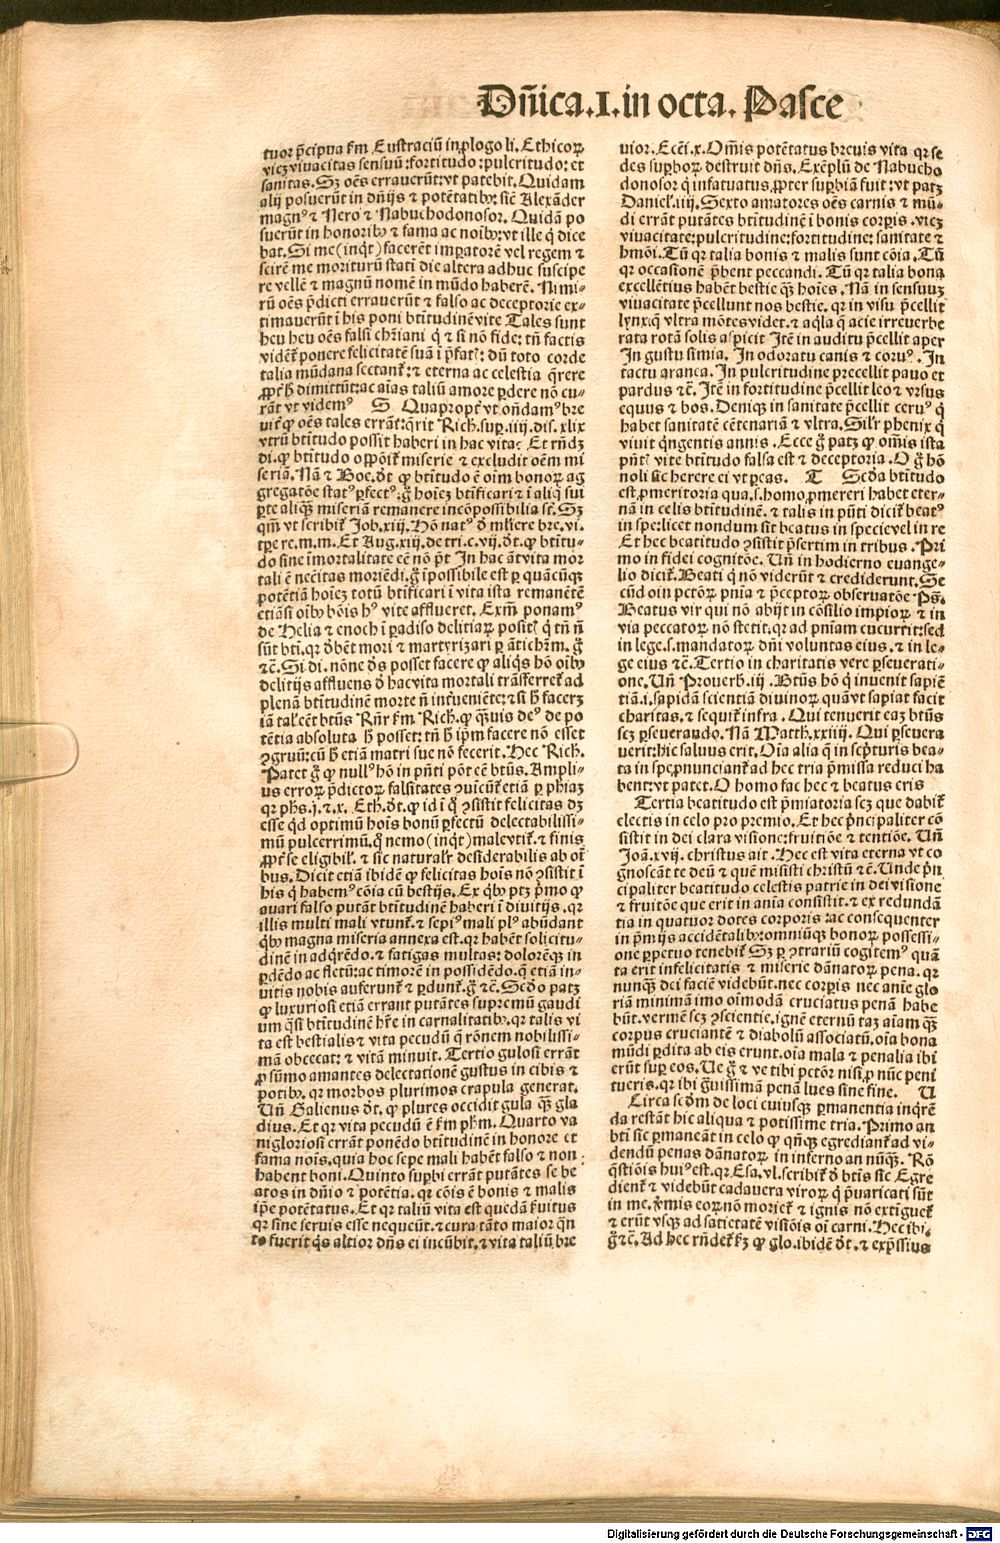 Dñica.I.in octa. Pasce
tuor p̃cipua ẜm Eustraciũ in ꝓlogo li. Ethicoꝝ
vicꝫ viuacitas sensuũ: fortitudo: pulcritudo: et
sanitas. Sꝫ oẽs errauerũt: vt patebit. Quidam
alij posuerũt in dñijs ⁊ potẽtatibꝰ: sic̃ Alexãder
magnꝰ ⁊ Nero ⁊ Nabuchodonosor. Quidã po
suerũt in honoribꝰ ⁊ fama ac noĩbꝰ: vt ille q̃ dice
bat. Si me (inq̃t) facerẽt imꝑatorẽ vel regem ⁊
scirẽ me moriturũ stati die altera adhuc suscipe
re vellẽ ⁊ magnũ nomẽ in mũdo haberẽ. Nimi-
rũ oẽs p̃dicti errauerũt ⁊ falso ac deceptorie ex-
timauerũt ĩ his poni btĩtudinẽ vite Tales sunt
heu heu oẽs falsi chr̃iani q̃ ⁊ si nõ fide: tñ factis
vident̃ ponere felicitatẽ suã ĩ p̃fatꝭ: dũ toto corde
talia mũdana sectant̃: ⁊ eterna ac celestia q̃rere
ꝓpt̃ h̃ dimittũt: ac aĩas taliũ amore ꝑdere nõ cu-
rãt vt videmꝰ S Quapropt̃ vt oñdamꝰ bre
uit̃ ꝙ oẽs tales errãt: q̃rit Rich. suꝑ .iiij. dis. xlix
vtrũ btĩtudo possit haberi in hac vita: Et rñdꝫ
di. ꝙ btĩtudo oppõit̃ miserie ⁊ excludit oẽm mi
seriã. Nã ⁊ Boe. d̃t ꝙ btĩtudo ẽ oĩm bonoꝝ ag
gregatõe statꝰ ꝑfectꝰ: g̃ hoĩeꝫ btĩficari ⁊ ĩ aliq̃ sui
ꝑte aliq̃ miseriã remanere incõpossibilia st̃. Sꝫ
qm̃ vt scribit̃ Job. xiij. Hõ natꝰ d̃ mulĩere bre. vi.
tꝑe re. m. m. Et Aug. xiij. de tri. c. vij. d̃t. ꝙ btĩtu-
do sine ĩmortalitate eẽ nõ p̃t In hac ãt vita mor
tali ẽ necẽitas moriẽdi. g̃ ĩpossibile est ꝑ quãcũqꝫ
potẽtiã hoĩeꝫ totũ btĩficari ĩ vita ista remanẽtẽ
etiãsi oĩbꝰ bõis hꝰ vite afflueret. Exm̃ ponamꝰ
de Helia ⁊ enoch ĩ ꝑadiso delitiaꝝ positꝭ q̃ tñ ñ
sũt bti. qꝛ d̃bẽt mori ⁊ martyrizari ꝑ ãtichr̃m. g̃
⁊c̃. Si di. nõne d̃s posset facere ꝙ aliq̃s hõ oĩbꝰ
delitijs affluens d̃ hac vita mortali trãsferret̃ ad
plenã btĩtudinẽ morte ñ int̃ueniẽte: ⁊ si h̃ facerꝫ
iã tal̃ eẽt btũs Rñr ẜm Rich. ꝙ q̃uis deꝰ de po
tẽtia absoluta h̃ posset: tñ h̃ ip̃m facere nõ esset
ꝯgruũ: cũ h̃ etiã matri sue nõ fecerit. Hec Rich.
Patet g̃ ꝙ nullꝰ hõ in p̃nti põt eẽ btũs. Ampli-
us erroꝝ p̃dictoꝝ falsitates ꝯuicũt̃ etiã ꝑ ph̃iaꝫ
qꝛ ph̃s. j. ⁊. x. Eth. d̃t. ꝙ id ĩ q̃ ꝯsistit felicitas dꝫ
esse q̃d optimũ hoĩs bonũ ꝑfectũ delectabilissi-
mũ pulcerrimũ. q̃ nemo (inq̃t) male vtit̃. ⁊ finis
ꝓpt̃ se eligibil̃. ⁊ sic naturalr̃ desiderabilis ab oĩ
bus. Dicit etiã ibidẽ ꝙ felicitas hoĩs nõ ꝯsistit ĩ
his q̃ habemꝰ cõia cũ bestijs. Ex q̃bꝰ ptꝫ p̃mo ꝙ
auari falso putãt btĩtudinẽ haberi ĩ diuitijs. qꝛ
illis multi mali vtunt̃. ⁊ sepiꝰ mali plꝰ abũdant
q̃bꝰ magna miseria annexa est. qꝛ habẽt solicitu-
dinẽ in adq̃rẽdo. ⁊ fatigas multas: dolorẽqꝫ in
ꝑdẽdo ac fletũ: ac timorẽ in possidẽdo. q̃ etiã in-
uitis nobis auferunt̃ ⁊ ꝑdunt̃. g̃ ⁊c̃. Scd̃o patꝫ
ꝙ luxuriosi etiã errant putãtes supremũ gaudi
um q̃si btĩtudinẽ hr̃e in carnalitatibꝰ. qꝛ talis vi
ta est bestialis ⁊ vita pecudũ q̃ rõnem nobilissi-
mã obcecat: ⁊ vitã minuit. Tertio gulosi errãt
ꝓ sũmo amantes delectationẽ gustus in cibis ⁊
potibꝰ. qꝛ morbos plurimos crapula generat.
Uñ Galienus d̃t. ꝙ plures occidit gula q̃ꝫ gla
dius. Et qꝛ vita pecudũ ẽ ẜm ph̃m. Quarto va
nigloriosi errãt ponẽdo btĩtudinẽ in honore et
fama noĩs. quia hoc sepe mali habẽt falso ⁊ non
habent boni. Quinto suꝑbi errãt putãtes se be
atos in dñio ⁊ potẽtia. qꝛ cõis ẽ bonis ⁊ malis
ip̃e potẽtatus. Et qꝛ taliũ vita est quedã ẜuitus
qꝛ sine seruis esse nequeũt. ⁊ cura tãto maior q̃n
to fuerit q̃s altior dñs ei incũbit. ⁊ vita taliũ bre
uior. Eccĩ. x. Om̃is potẽtatus breuis vita qꝛ se
des suꝑboꝝ destruit dñs. Exẽplũ de Nabucho
donosor q̃ infatuatus ꝓpter suꝑbiã fuit: vt patꝫ
Daniel̃. iiij. Sexto amatores oẽs carnis ⁊ mũ-
di errãt putãtes btĩtudinẽ ĩ bonis corꝑis. vicꝫ
viuacitate: pulcritudine: fortitudine: sanitate ⁊
hm̃õi. Tũ qꝛ talia bonis ⁊ malis sunt cõia. Tũ
qꝛ occasionẽ p̃bent peccandi. Tũ qꝛ talia bona
excellẽtius habẽt bestie q̃ꝫ hoĩes. Nã in sensuuꝫ
viuacitate p̃cellunt nos bestie. qꝛ in visu p̃cellit
lynx: q̃ vltra mõtes videt. ⁊ aq̃la q̃ acie irreuerbe
rata rotã solis aspicit Itẽ in auditu p̃cellit aper
In gustu simia. In odoratu canis ⁊ coruꝰ. In
tactu aranea. In pulcritudine precellit pauo et
pardus ⁊c̃. Itẽ in fortitudine p̃cellit leo ⁊ vrsus
equus ⁊ bos. Deniqꝫ in sanitate p̃cellit ceruꝰ q̃
habet sanitatẽ cẽtenariã ⁊ vltra. Sil̃r phenix q̃
viuit q̃ngentis annis. Ecce g̃ patꝫ ꝙ om̃is ista
p̃ntꝭ vite btĩtudo falsa est ⁊ deceptoria. O g̃ hõ
noli sic herere ei vt ꝑeas. T Scd̃a btĩtudo
est ꝓmeritoria qua. s. homo ꝓmereri habet eter-
nã in celis btĩtudinẽ. ⁊ talis in p̃nti dicit̃ beatꝰ
in spe: licet nondum sit beatus in specie vel in re
Et hec beatitudo ꝯsistit p̃sertim in tribus. Pri
mo in fidei cognitõe. Uñ in hodierno euange-
lio dicit̃. Beati q̃ nõ viderũt ⁊ crediderunt. Se
cũd oin pctõꝝ pnia ⁊ p̃ceptoꝝ obseruatõe Pš.
Beatus vir qui nõ abijt in cõsilio impioꝝ ⁊ in
via peccatoꝝ nõ stetit. qꝛ ad pniam cucurrit: sed
in lege. s. mandatoꝝ dñi voluntas eius. ⁊ in le-
ge eius ⁊c̃. Tertio in charitatis vere ꝑseuerati-
one. Uñ Prouerb. iij. Btũs hõ q̃ inuenit sapiẽ
tiã. i. sapidã scientiã diuinoꝝ quã vt sapiat facit
charitas. ⁊ sequit̃ infra. Qui tenuerit eaꝫ btũs
scꝫ ꝑseuerando. Nã Matth. xxiiij. Qui ꝑseuera
uerit: hic saluus erit. Oĩa alia q̃ in scp̃turis bea-
ta in spe ꝓnunciant̃ ad hec tria p̃missa reduci ha
bent: vt patet. O homo fac hec ⁊ beatus eris
Tertia beatitudo est p̃miatoria scꝫ que dabit̃
electis in celo pro premio. Et hec p̃ncipaliter cõ
sistit in dei clara visione: fruitiõe ⁊ tentiõe. Uñ
Joã. xvij. christus ait. Hec est vita eterna vt co
gnoscãt te deũ ⁊ quẽ misisti christũ ⁊c̃. Unde p̃n
cipaliter beatitudo celestis patrie in dei visione
⁊ fruitõe que erit in anĩa consistit. ⁊ ex redundã
tia in quatuor dotes corporis: ac consequenter
in p̃mijs accidẽtalibꝰ: omniũqꝫ bonoꝝ possessi-
one ꝑpetuo tenebit̃ Sꝫ ꝑ ꝯtrariũ cogitemꝰ quã
ta erit infelicitatis ⁊ miserie dãnatoꝝ pena. qꝛ
nunqꝫ dei faciẽ videbũt. nec corꝑis nec anĩe glo
riã minimã imo oĩmodã cruciatus penã habe
būt. vermẽ scꝫ ꝯscientie. ignẽ eternũ taꝫ aĩam q̃ꝫ
corpus cruciantẽ ⁊ diabolũ associatũ. oĩa bona
mũdi ꝑdita ab eis erunt. oĩa mala ⁊ penalia ibi
erũt suꝑ eos. Ue g̃ ⁊ ve tibi pctõr nisi ꝓ nũc peni
tueris. qꝛ ibi g̃uissimã penã lues sine fine. U
Circa scd̃m de loci cuiusqꝫ ꝑmanentia inq̃rẽ
da restãt hic aliqua ⁊ potissime tria. Primo an
bti sic ꝑmaneãt in celo ꝙ qñqꝫ egrediant̃ ad vi-
dendũ penas dãnatoꝝ in inferno an nũqꝫ. Rõ
q̃stiõis huiꝰ est. qꝛ Esa. vl. scribit̃ d̃ btis sic Egre
dient̃ ⁊ videbũt cadauera viroꝝ q̃ p̃uaricati sũt
in me. ṽmis eoꝝ nõ moriet̃ ⁊ ignis nõ extiguet̃
⁊ erũt vsqꝫ ad satietatẽ visiõis oĩ carni. Hec ibi.
g̃ ⁊c̃. Ad hec rñdet̃ ẜꝫ ꝙ glo. ibidẽ d̃t. ⁊ exp̃ssius
Digitalisierung gefördert durch die Deutsche Forschungsgemeinschaft - DFG